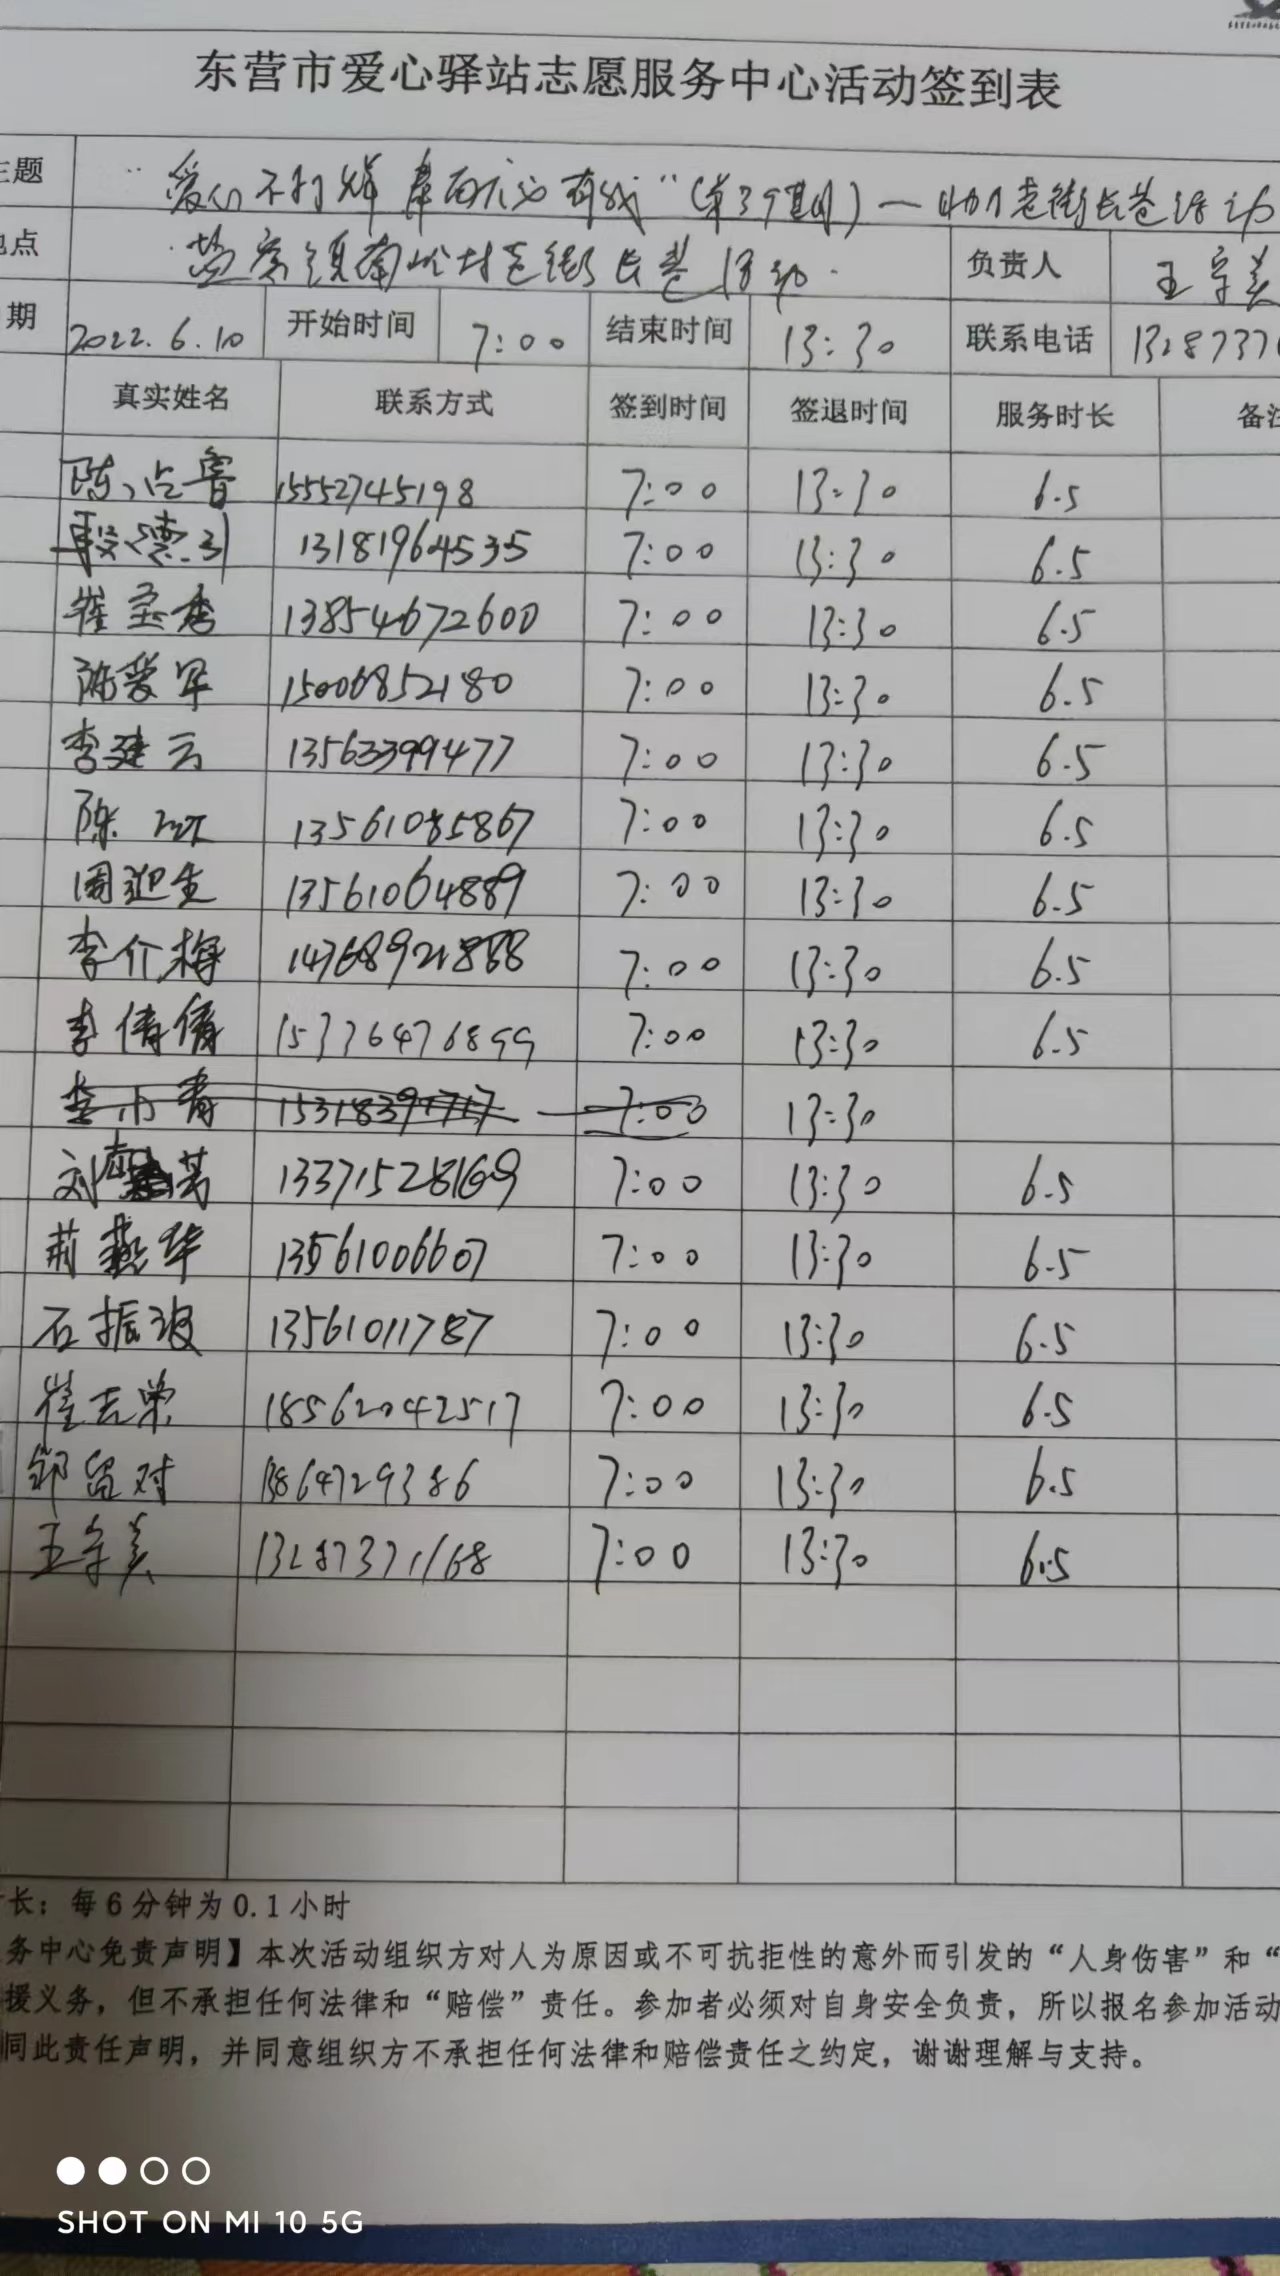 东营市爱心驿站志愿服务中心活动签到表
主题 "爱心不打烊 奉献 有我"(第39期)—助力老街长巷活动
地点 盐窝镇南岭村老街长巷活动. 负责人 王守美
期 2022.6.10 开始时间 7:00 结束时间 13:30 联系电话 1328737
真实姓名 联系方式 签到时间 签退时间 服务时长 备注
陈占鲁 15552745198 7:00 13:30 6.5
13181964535 7:00 13:30 6.5
崔宝秀 13854672600 7:00 13:30 6.5
陈爱军 15006852180 7:00 13:30 6.5
李建云 13563399477 7:00 13:30 6.5
陈 13561085867 7:00 13:30 6.5
周迎生 13561064889 7:00 13:30 6.5
李介梅 14768921888 7:00 13:30 6.5
李倩倩 15376476899 7:00 13:30 6.5
李小青 15318391717 7:00 13:30
刘 芳 13371528169 7:00 13:30 6.5
荆燕华 13561006607 7:00 13:30 6.5
石振波 13561011787 7:00 13:30 6.5
崔志荣 18562042517 7:00 13:30 6.5
邹留对 13864729386 7:00 13:30 6.5
王守美 13287371168 7:00 13:30 6.5
长：每6分钟为0.1小时
务中心免责声明】本次活动组织方对人为原因或不可抗拒性的意外而引发的“人身伤害”和“
援义务，但不承担任何法律和“赔偿”责任。参加者必须对自身安全负责，所以报名参加活动
同此责任声明，并同意组织方不承担任何法律和赔偿责任之约定，谢谢理解与支持。
SHOT ON MI 10 5G